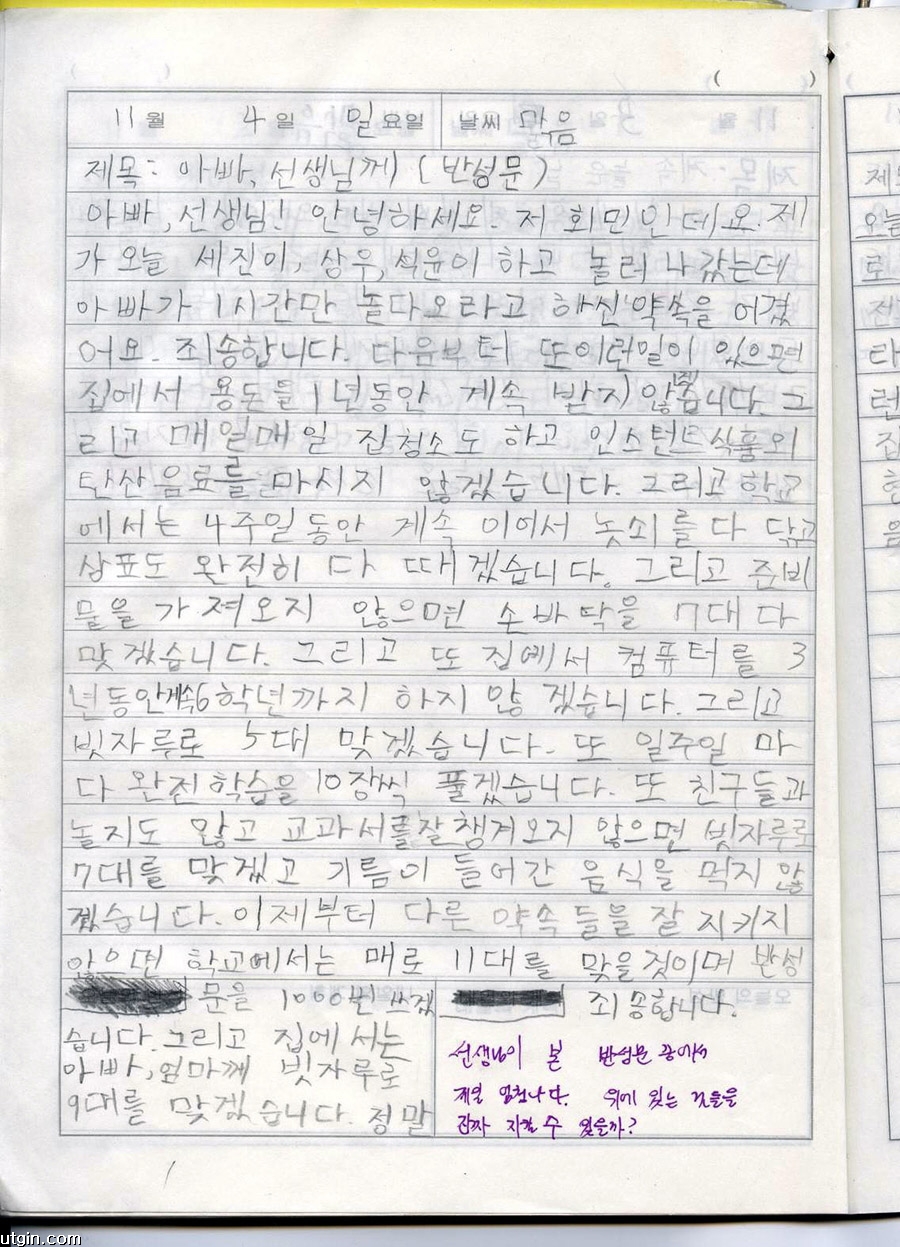 11월 4일 일요일 날씨 맑음
제목: 아빠, 선생님께 (반성문)
아빠, 선생님! 안녕하세요. 저 희민인데요. 제
가 오늘 세진이, 상우, 석윤이 하고 놀러 나갔는데
아빠가 1시간만 놀다오라고 하신 약속을 어겼
어요. 죄송합니다. 다음부터 또이런일이 있으면
집에서 용돈을 1년동안 계속 받지않겠습니다. 그
리고 매일매일 집청소도 하고 인스턴트식품외
탄산음료를 마시지 않겠습니다. 그리고 학교
에서는 4주일동안 계속 이어서 놋쇠를 다 닦고
상표도 완전히 다 떼겠습니다. 그리고 준비
물을 가져오지 않으면 손바닥을 7대 다
맞겠습니다. 그리고 또 집에서 컴퓨터를 3
년동안계속6학년까지 하지 않겠습니다. 그리고
빗자루로 5대 맞겠습니다. 또 일주일 마
다 완전학습을 10장씩 풀겠습니다. 또 친구들과
놀지도 않고 교과서를잘챙겨오지 않으면 빗자루로
7대를 맞겠고 기름이 들어간 음식을 먹지 않
겠습니다. 이제부터 다른 약속들을 잘 지키지
않으면 학교에서는 매로 11대를 맞을것이며 반성
문을 1000번 쓰겠
습니다. 그리고 집에서는
아빠, 엄마께 빗자루로
9대를 맞겠습니다. 정말
죄송합니다.
선생님이 본 반성문 중에서
제일 엄청나다. 위에 있는 것들을
진짜 지킬 수 있을까?
제
오늘
로
전
타
런
집
한
음
utgin.com